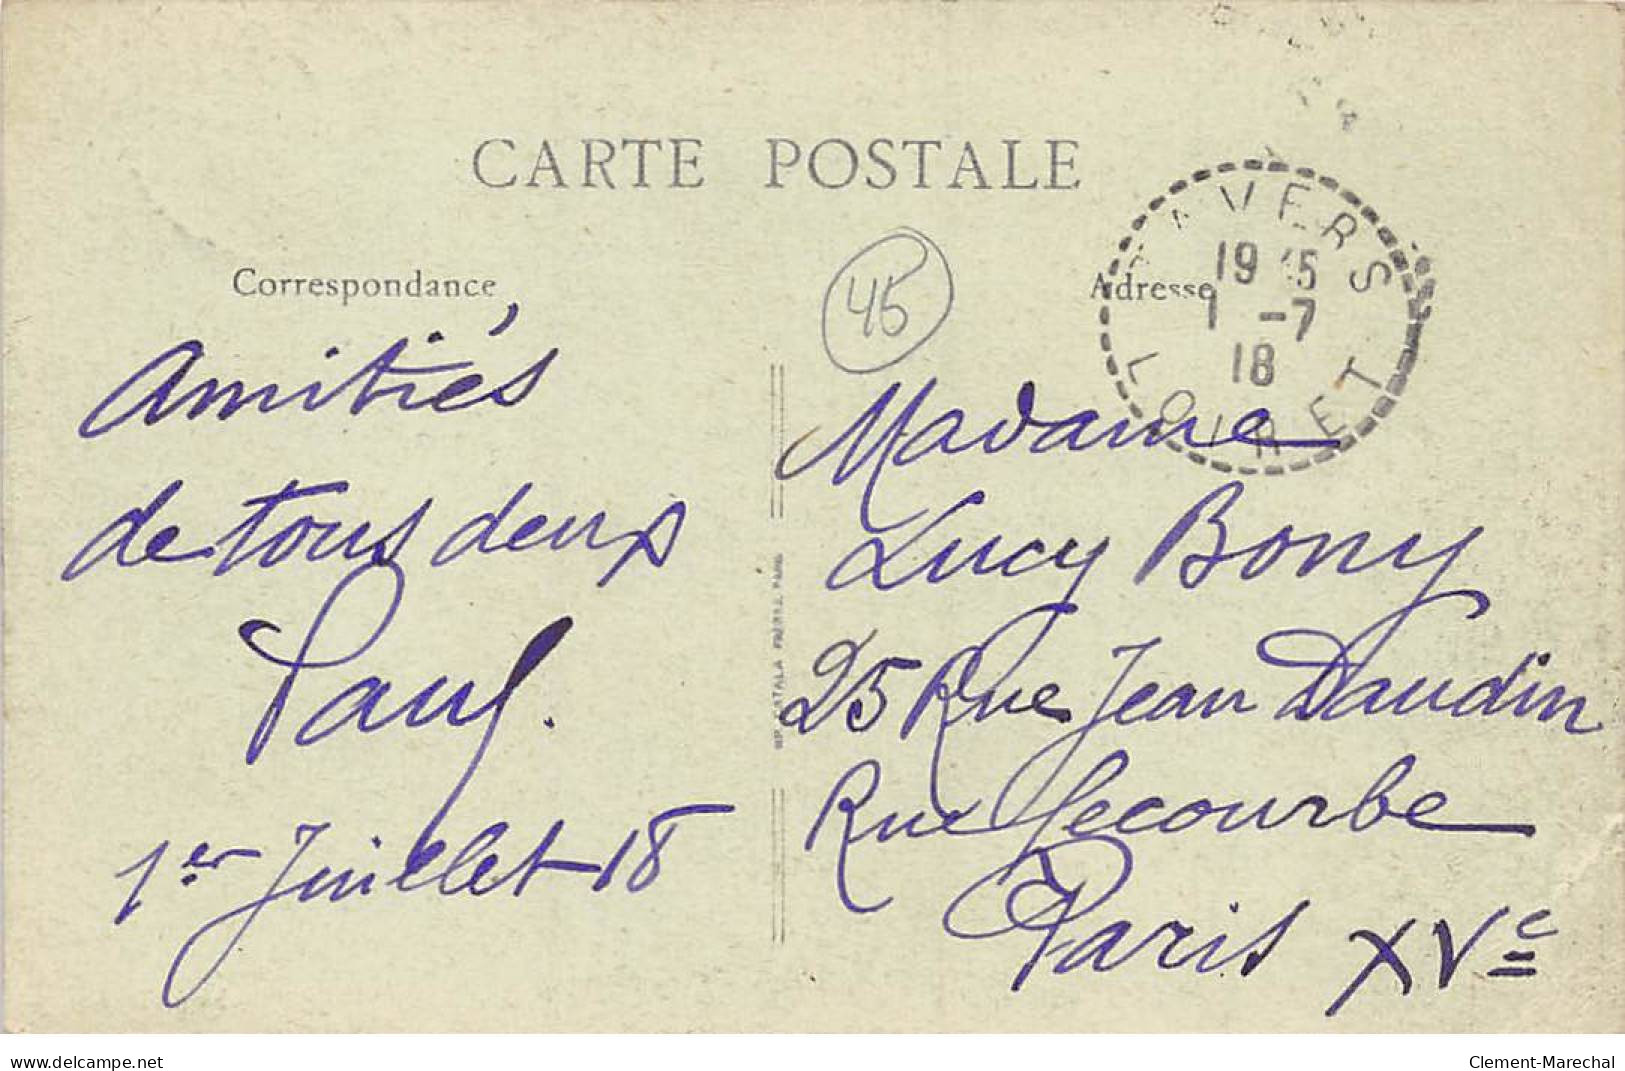 CARTE POSTALE
Correspondance
Adresse
45
VERS
19 45
1 -7
18
LOIRET
Amitiés
de tous deux
Paul.
1er Juillet 18
Madame
Lucy Bony
25 Rue Jean Daudin
Rue Lecourbe
Paris XVe
delcampe.net
Clement-Marechal